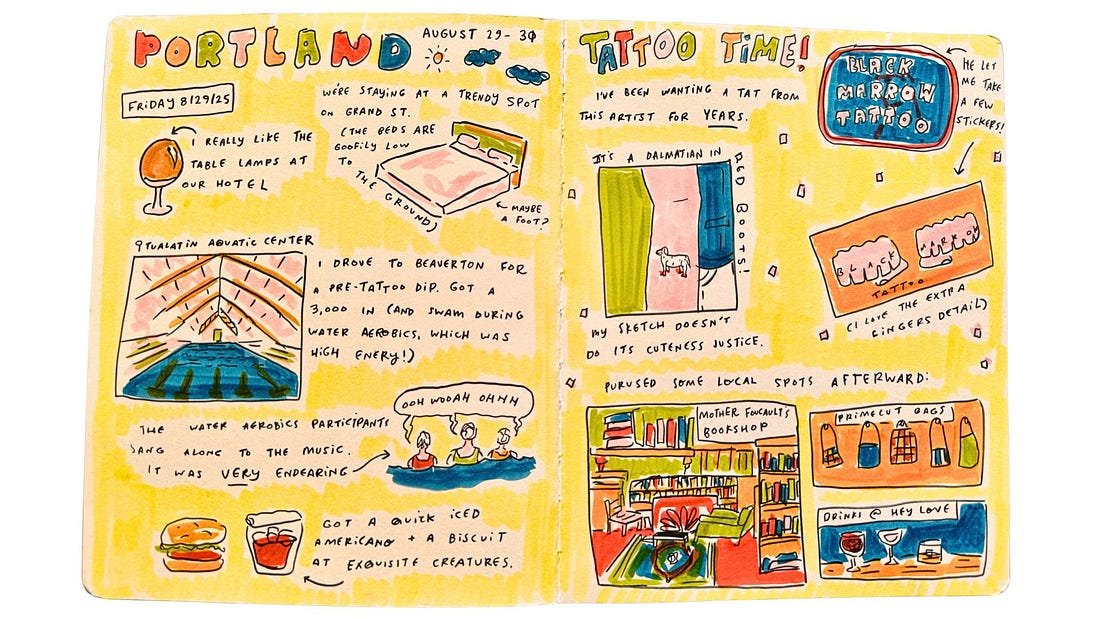 PORTLAND
AUGUST 29-30
FRIDAY 8/29/25
I REALLY LIKE THE
TABLE LAMPS AT
OUR HOTEL
WE'RE STAYING AT A TRENDY SPOT
ON GRAND ST.
(THE BEDS ARE
GOOFILY LOW
TO
THE GROUND)
MAYBE
A FOOT?
TUALATIN AQUATIC CENTER
I DROVE TO BEAVERTON FOR
A PRE-TATTOO DIP. GOT A
3,000 IN (AND SWAM DURING
WATER AEROBICS, WHICH WAS
HIGH ENERY!)
THE WATER AEROBICS PARTICIPANTS
SANG ALONG TO THE MUSIC.
IT WAS VERY ENDEARING
OOH WOOAH OHHH
GOT A QUICK ICED
AMERICANO + A BISCUIT
AT EXQUISITE CREATURES.
TATTOO TIME!
I'VE BEEN WANTING A TAT FROM
THIS ARTIST FOR YEARS.
BLACK
MARROW
TATTOO
HE LET
ME TAKE
A FEW
STICKERS!
IT'S A DALMATIAN IN
RED BOOTS!
MY SKETCH DOESN'T
DO ITS CUTENESS JUSTICE.
BLACK
MARROW
TATTOO
(I LOVE THE EXTRA
GINGERS DETAIL)
PURUSED SOME LOCAL SPOTS AFTERWARD:
MOTHER FOUCAULT'S
BOOKSHOP
PRIMECUT BAGS
DRINKS @ HEY LOVE